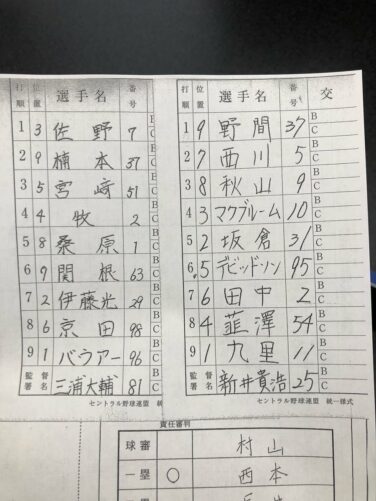 打順 位置 選手名 番号
1 3 佐野 7 B C
2 9 楠本 37 B C
3 5 宮﨑 51 B C
4 4 牧 2 B C
5 8 桑原 1 B C
6 9 関根 63 B C
7 2 伊藤光 29 B C
8 6 京田 98 B C
9 1 バウアー 96 B C
監督署名 三浦大輔 81 B C
セントラル野球連盟 統
打順 位置 選手名 番号 交
1 9 野間 37 B C
2 7 西川 5 B C
3 8 秋山 9 B C
4 3 マクブルーム 10 B C
5 2 坂倉 31 B C
6 5 デビッドソン 95 B C
7 6 田中 2 B C
8 4 韮澤 54 B C
9 1 九里 11 B C
監督署名 新井貴浩 25 B C
セントラル野球連盟 統一様式
責任審判
球審 村山
一塁 ○ 西本